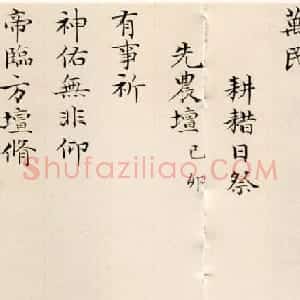 萬民
耕耤日祭
先農壇己卯
有事祈
神佑無非仰
帝臨方壇脩
Shufaziliao.com